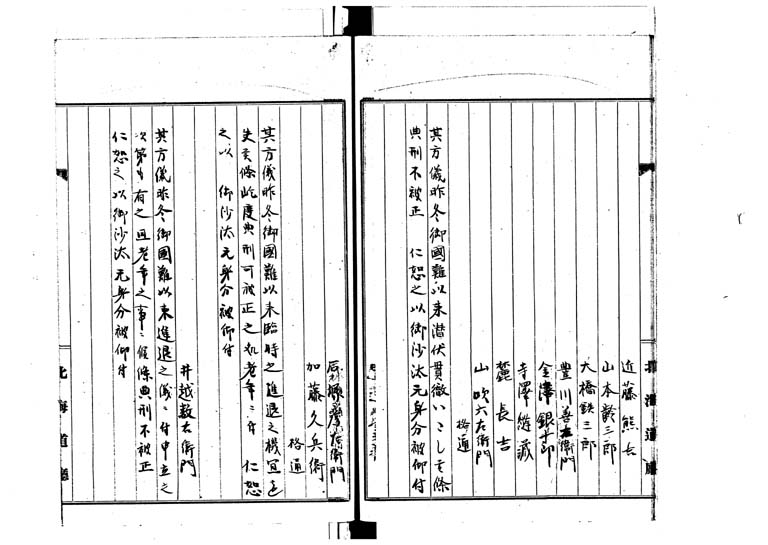 近藤熊七
山本齢三郎
大橋鉄三郎
豊川善左衛門
金澤銀十郎
寺澤健蔵
簏長吉
山吹六左衛門
格通
其方儀昨冬御國難以来潜伏貫徹いたし候條
典刑不被正 仁恕之以御沙汰元身分被仰付
加藤久兵衛
格通
其方儀昨冬御國難以来臨時之進退之機宜を
失候條屹度典刑可被正之処老年ニ付 仁恕
之以 御沙汰元身分被仰付
井越数右衛門
其方儀昨冬御國難以来進退之儀ニ付申立之
次第も有之且老年之事ニ候條典刑不被正
仁恕之以御沙汰元身分被仰付
北海道廳